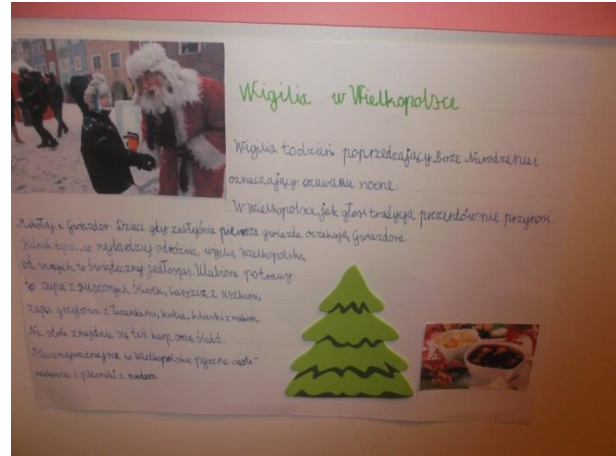 Wigilia w Wielkopolsce
Wigilia to dzień poprzedzający Boże Narodzenie i
oznaczający czuwanie nocne.
W Wielkopolsce, jak głosi tradycja prezentów nie przynosi
Mikołaj a Gwiazdor. Dzieci gdy zabłyśnie pierwsza gwiazda oczekują Gwiazdora.
tym, co najbardziej odróżnia wigilię wielkopolską
od innych to świąteczny jadłospis. Ulubione potrawy
to zupa z suszonych śliwek, barszcz z uszkami,
zupa grzybowa z łazankami, kutia, kluski z makiem.
Na stole znajdzie się też karp oraz śledź.
w Wielkopolskie pyszne ciasto-
makowce i pierniki z miodem.